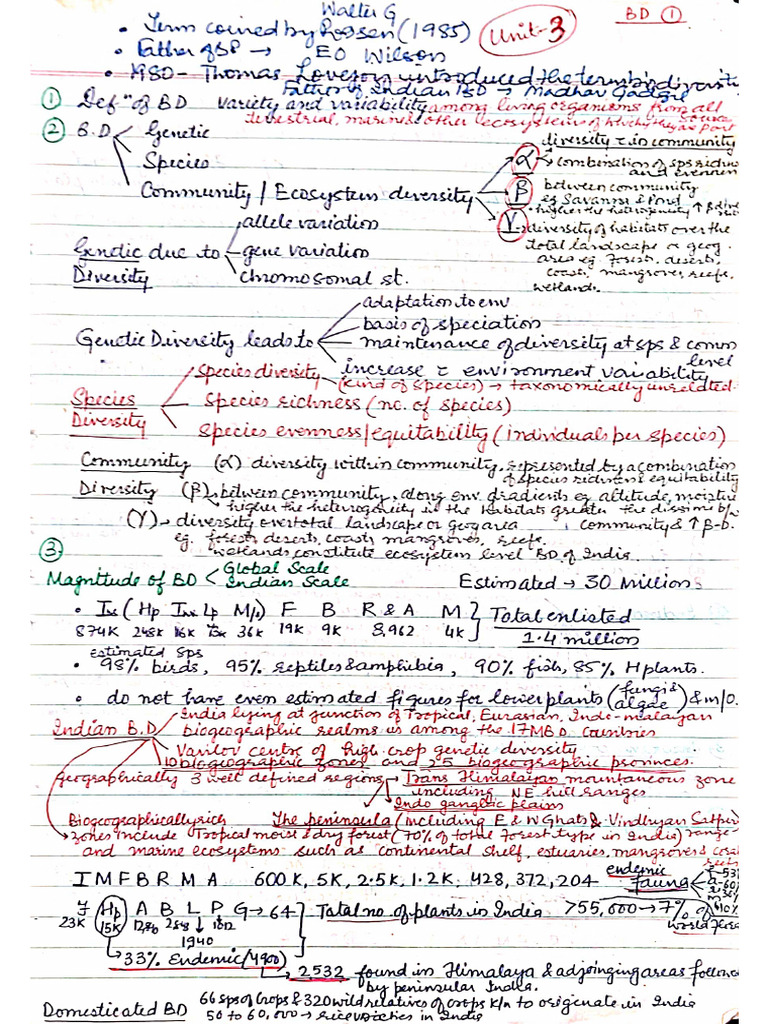 Walter G
• Term coined by Rossen (1985)
Unit-3
BD ①
• Father of BD → EO Wilson
• 1980 - Thomas Lovejoy introduced the term biodiversity
Father of Indian BD → Madhav Gadgil
① Defⁿ of BD variety and variability among living organisms from all source
terrestrial, marine & other ecosystems of which they are part
② B.D
Genetic
Species
Community / Ecosystem diversity
diversity in community
α → combination of sps richn
and evenness
β between community
eg Savanna & Pond
• higher the heterogenity ↑ β-dive
γ → diversity of habitats over the
total landscape or geog.
area eg. forests, deserts,
coasts, mangroves, reefs,
wetlands.
Genetic due to
Diversity
allele variation
gene variation
chromosomal st.
Genetic Diversity leads to
adaptation to env
basis of speciation
maintenance of diversity at sps & comm
level
increase c environment variability
Species
Diversity
Species diversity
(kind of species) → taxonomically unrelated
Species richness (no. of species)
Species evenness/equitability (individuals per species)
Community (α) diversity within community, represented by a combination
of species richness & equitability
Diversity (β) between community, along env. gradients eg altitude, moisture
higher the heterogenity in the habitats greater the dissimi b/w
(γ) → diversity over total landscape or geog area community & ↑ β-D.
eg. forests, deserts, coasts, mangroves, reefs
wetlands constitute ecosystem level BD of India.
③
Magnitude of BD
Global Scale
Indian Scale
Estimated → 30 Millions
• Ins (Hp Inv Lp M/o) F B R & A M } Total enlisted
874K 248K 116K 73K 36K 19K 9K 8,962 4K 1.4 million
estimated sps
• 98% birds, 95% reptiles & amphibia, 90% fish, 85% H plants.
• do not have even estimated figures for lower plants (fungi & algae) & m/o.
Indian B.D
India lying at junction of Tropical, Eurasian, Indo-malayan
biogeographic realms is among the 17 MBD countries
Vavilov centre of high crop genetic diversity
10 biogeographic zones and 25 biogeographic provinces.
geographically 3 well defined regions → Trans Himalayan mountainous zone
including NE hill ranges
Indo gangetic plains
Biogeographically rich The peninsula (including E & W Ghats & Vindhyan Satpur
range
zones include Tropical moist & dry forest (70% of total forest type in India)
and marine ecosystems such as continental shelf, estuaries, mangroves & coral
reefs
I M F B R M A 600K, 5K, 2.5K, 1.2K, 428, 372, 204 endemic
Fauna
F Hp A B L P G → 64 } Total no. of plants in India >55,000 → 7% of
world flora
23K 15K
1940
33% Endemic (4900)
2,532 found in Himalaya & adjoinging areas follow
by peninsular India.
Domesticated BD 66 sps of crops & 320 wild relatives of crops k/n to originate in India
50 to 60,000 → rice varieties in India